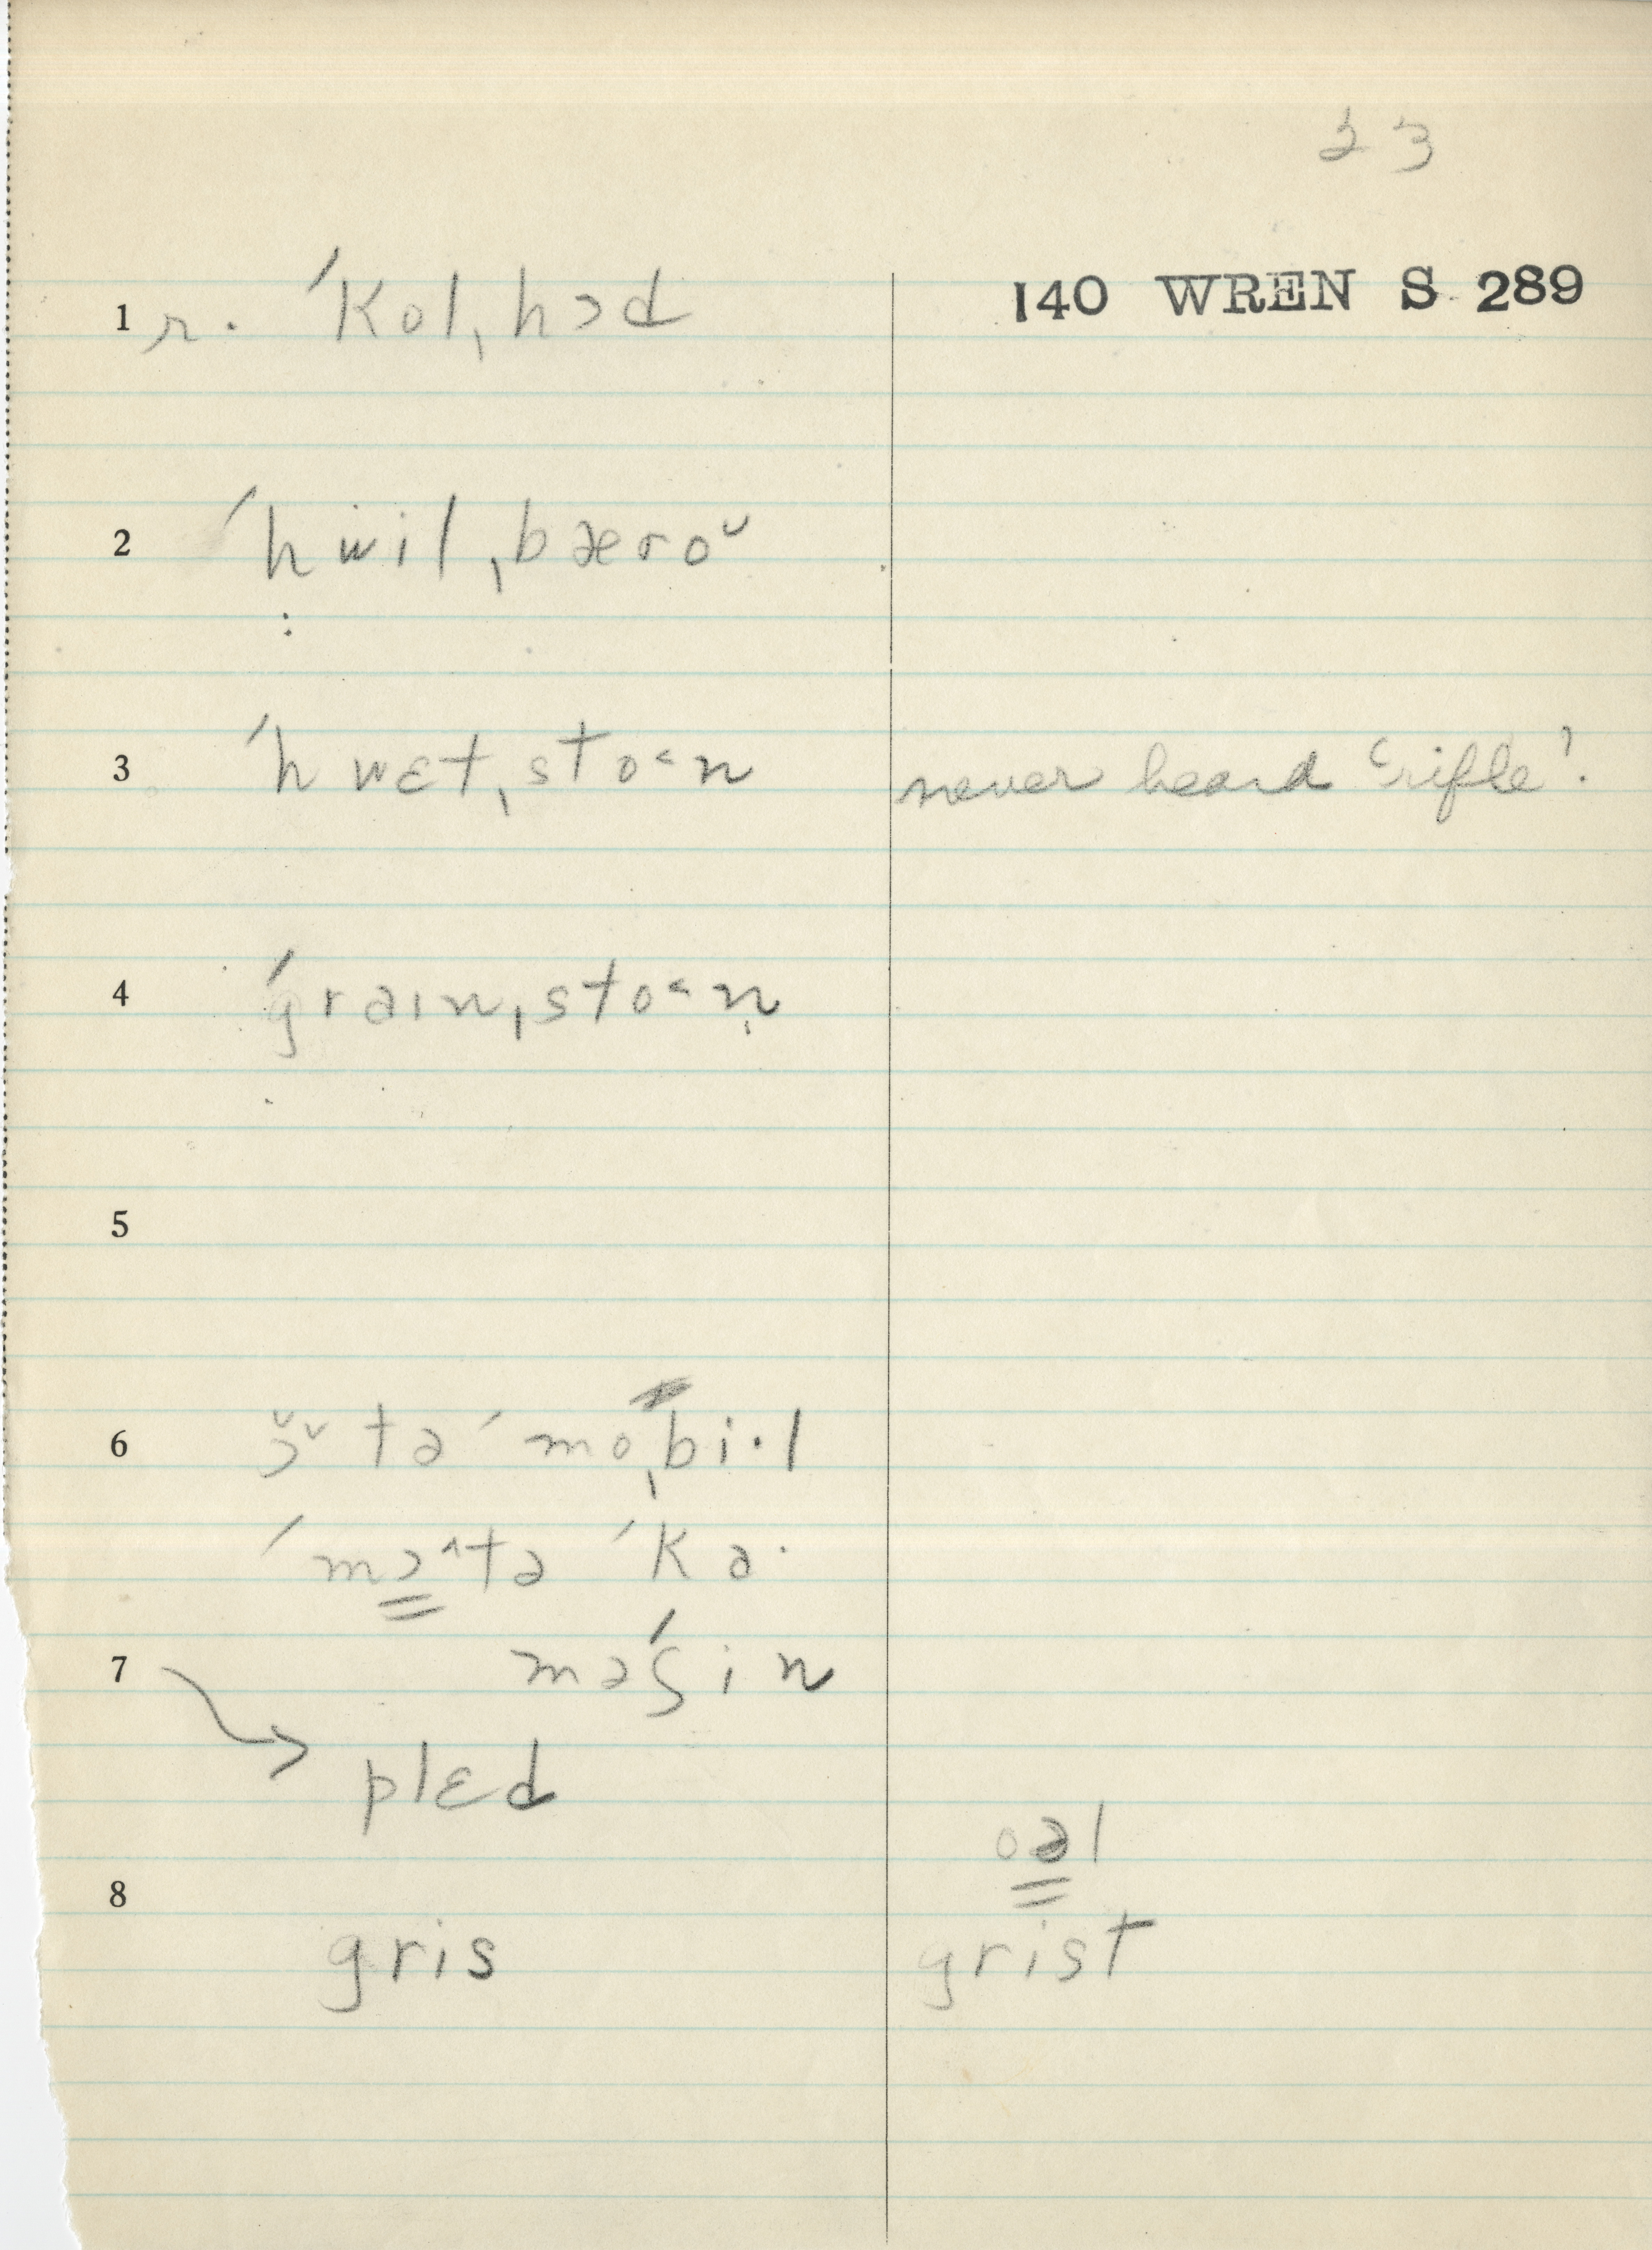 23
140 WREN S 289
1 r. ˈkolˌhɔd
2 ˈhwilˌbæroᵕ
3 ˈhwɛtˌsto˂n never heard ‘rifle’.
4 ˈgraɪnˌsto˂n
5
6 ɔ̆ᵛtəˈmoˌbi·l
ˈmɔ^tə ˈka·
7 məˈʃin
plɛd
oəl
8
gris grist